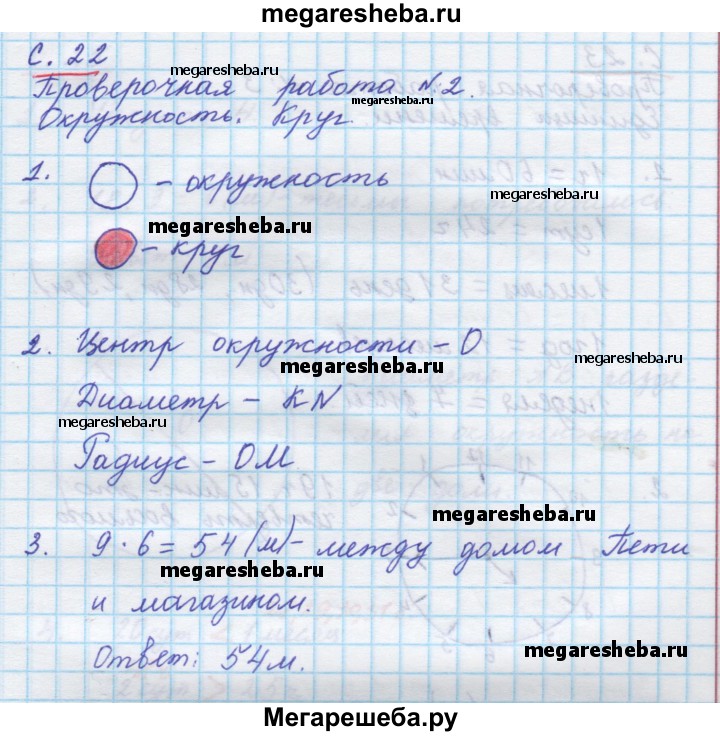 megaresheba.ru
С. 22
megaresheba.ru
Проверочная работа №2.
megaresheba.ru
Окружность. Круг.
1. - окружность
megaresheba.ru
megaresheba.ru
- круг
2. Центр окружности - О
megaresheba.ru
megaresheba.ru
Диаметр - KN
megaresheba.ru
Радиус - ОМ
megaresheba.ru
3. 9 · 6 = 54 (м) - между домом Пети
megaresheba.ru
и магазином.
megaresheba.ru
Ответ: 54 м.
Мегарешеба.ру